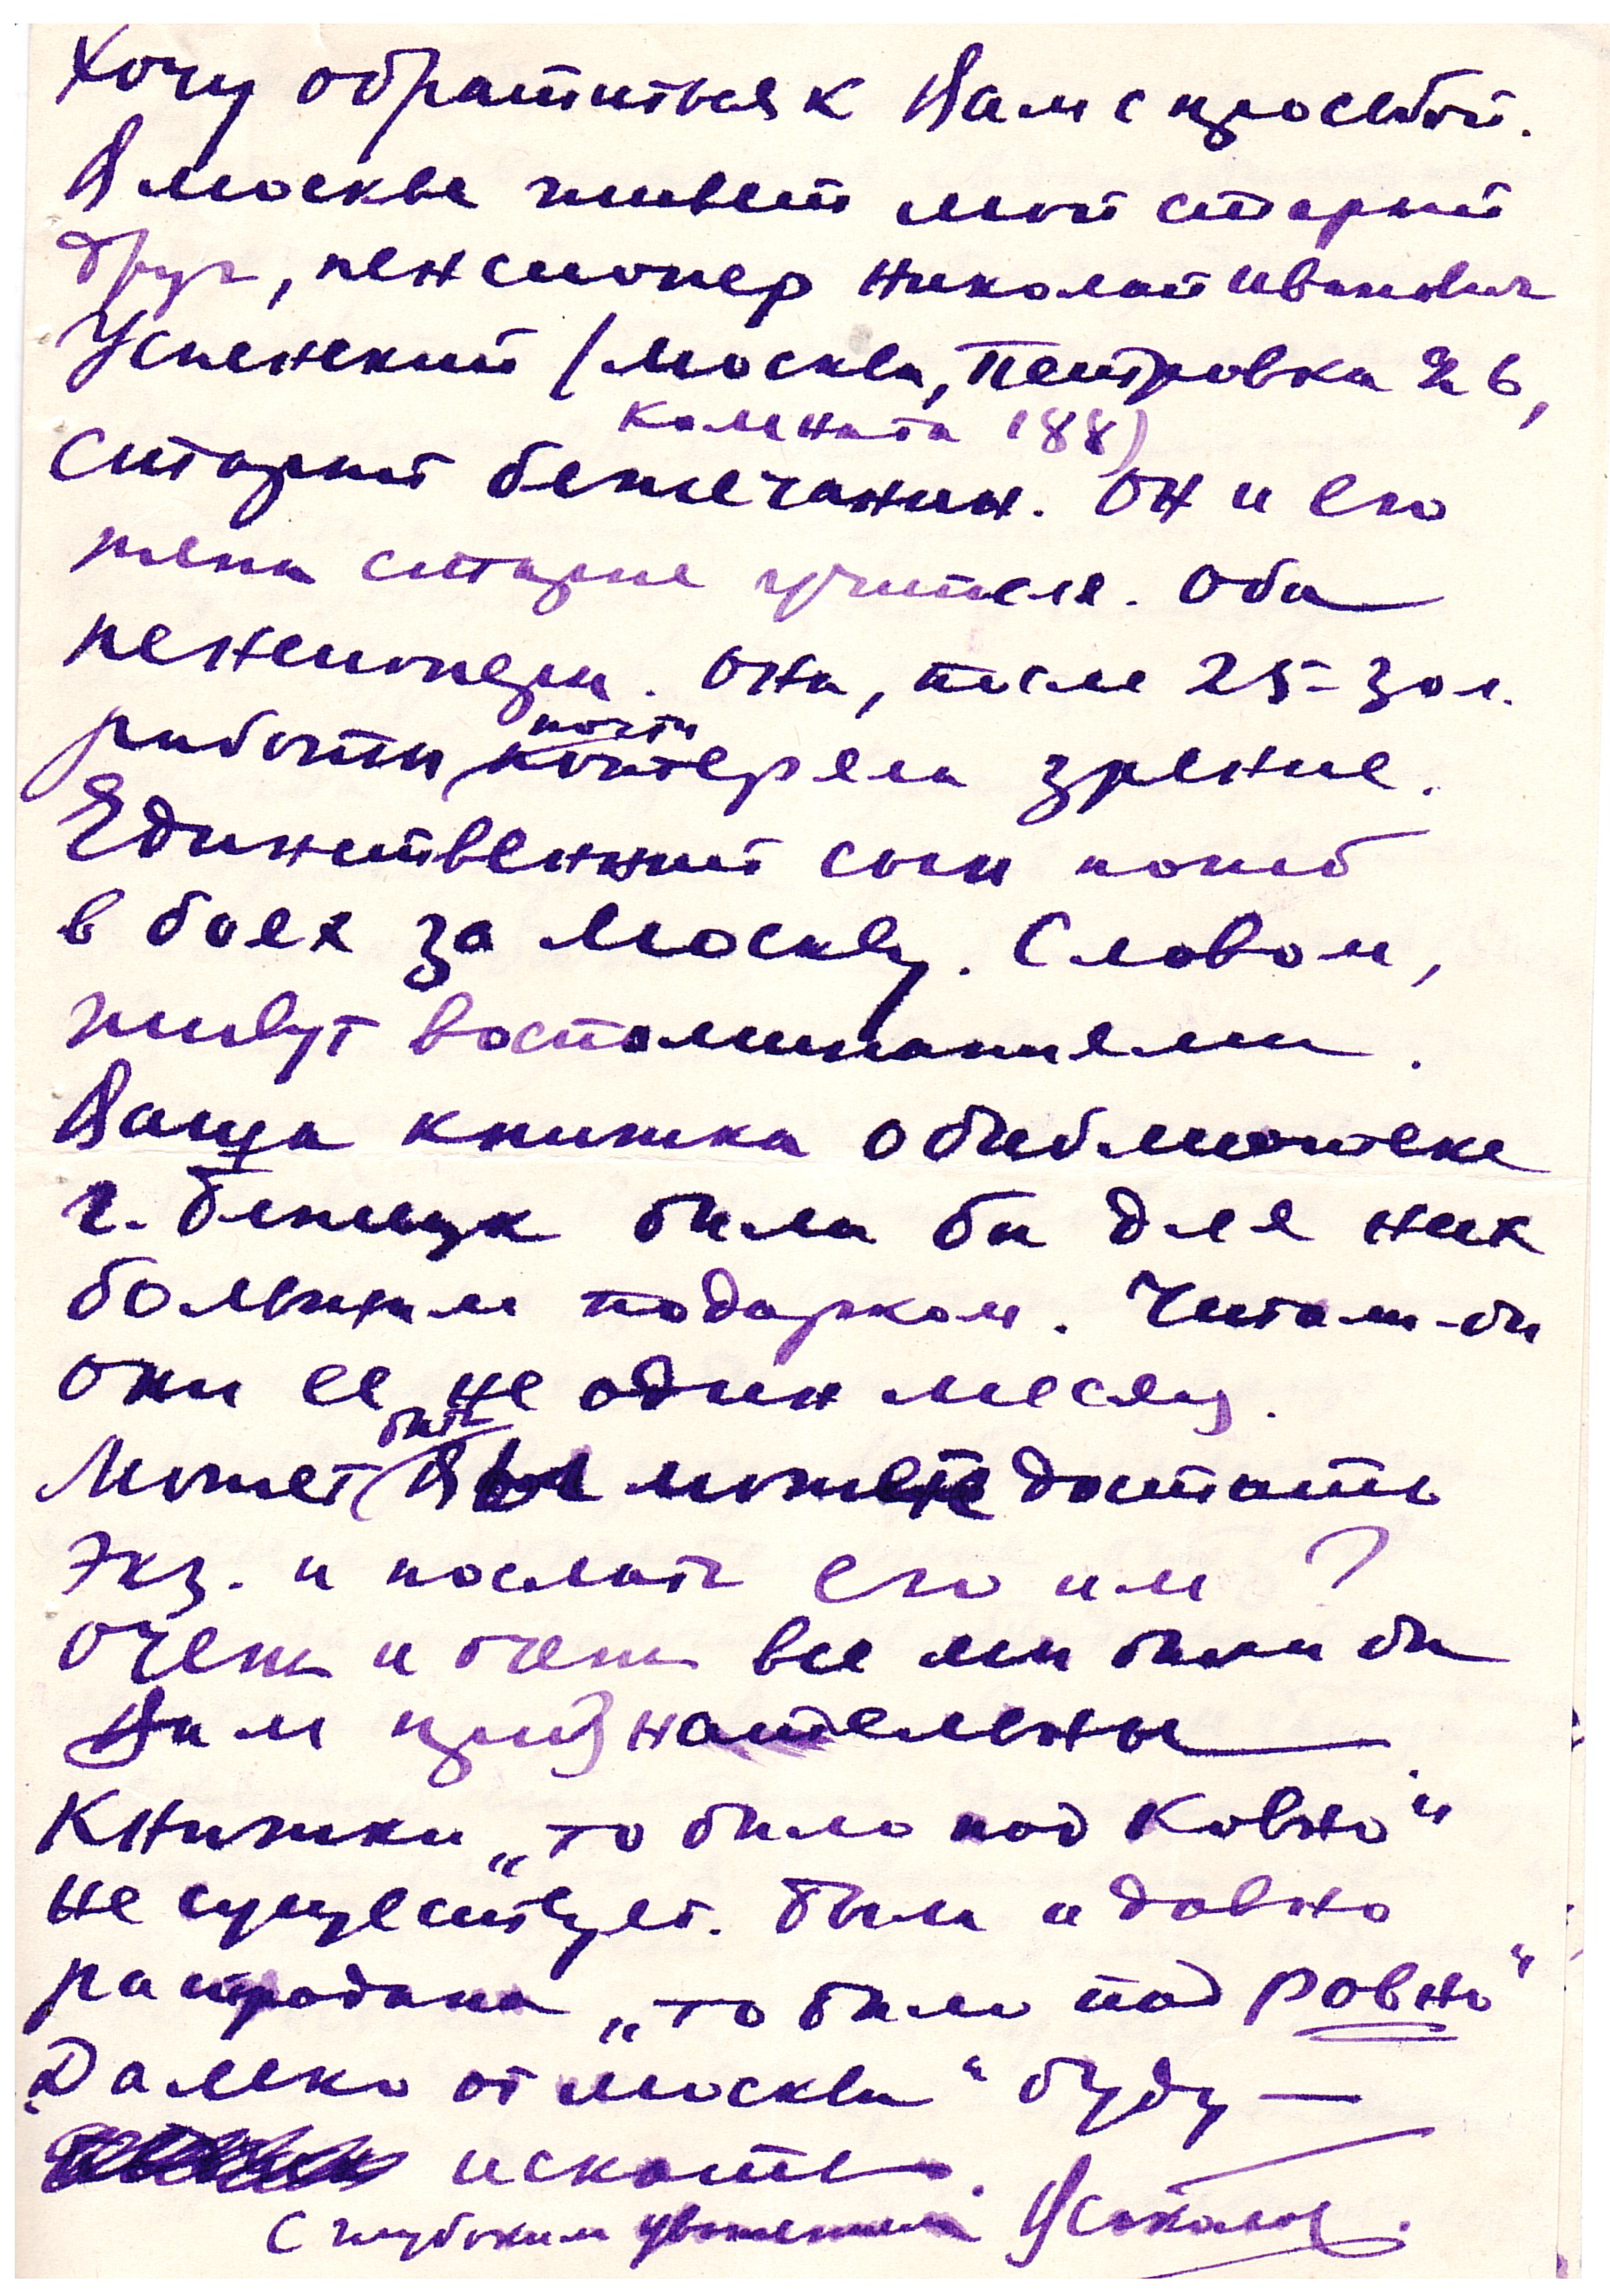 Хочу обратиться к Вам с просьбой.
В Москве живет мой старый
друг, пенсионер Николай Иванович
Успенский (Москва, Петровка 26,
комната 188)
Старый бежечанин. Он и его
жена старые учителя. Оба
пенсионеры. Она, после 25-30 л.
почти
работы потеряла зрение.
Единственный сын погиб
в боях за Москву. Словом,
живут воспоминаниями.
Ваша книжка о библиотеке
г. Бежецк была бы для них
большим подарком. Читали-бы
они ее не один месяц.
быть
Может Вы можете достать
экз. и послать его им?
Очень и очень все мы были бы
Вам признательны
Книжки „То было под Ковно"
не существует. Была и давно
распродана „То было под Ровно"
„Далеко от Москвы" буду —
искать.
С глубоким уважением